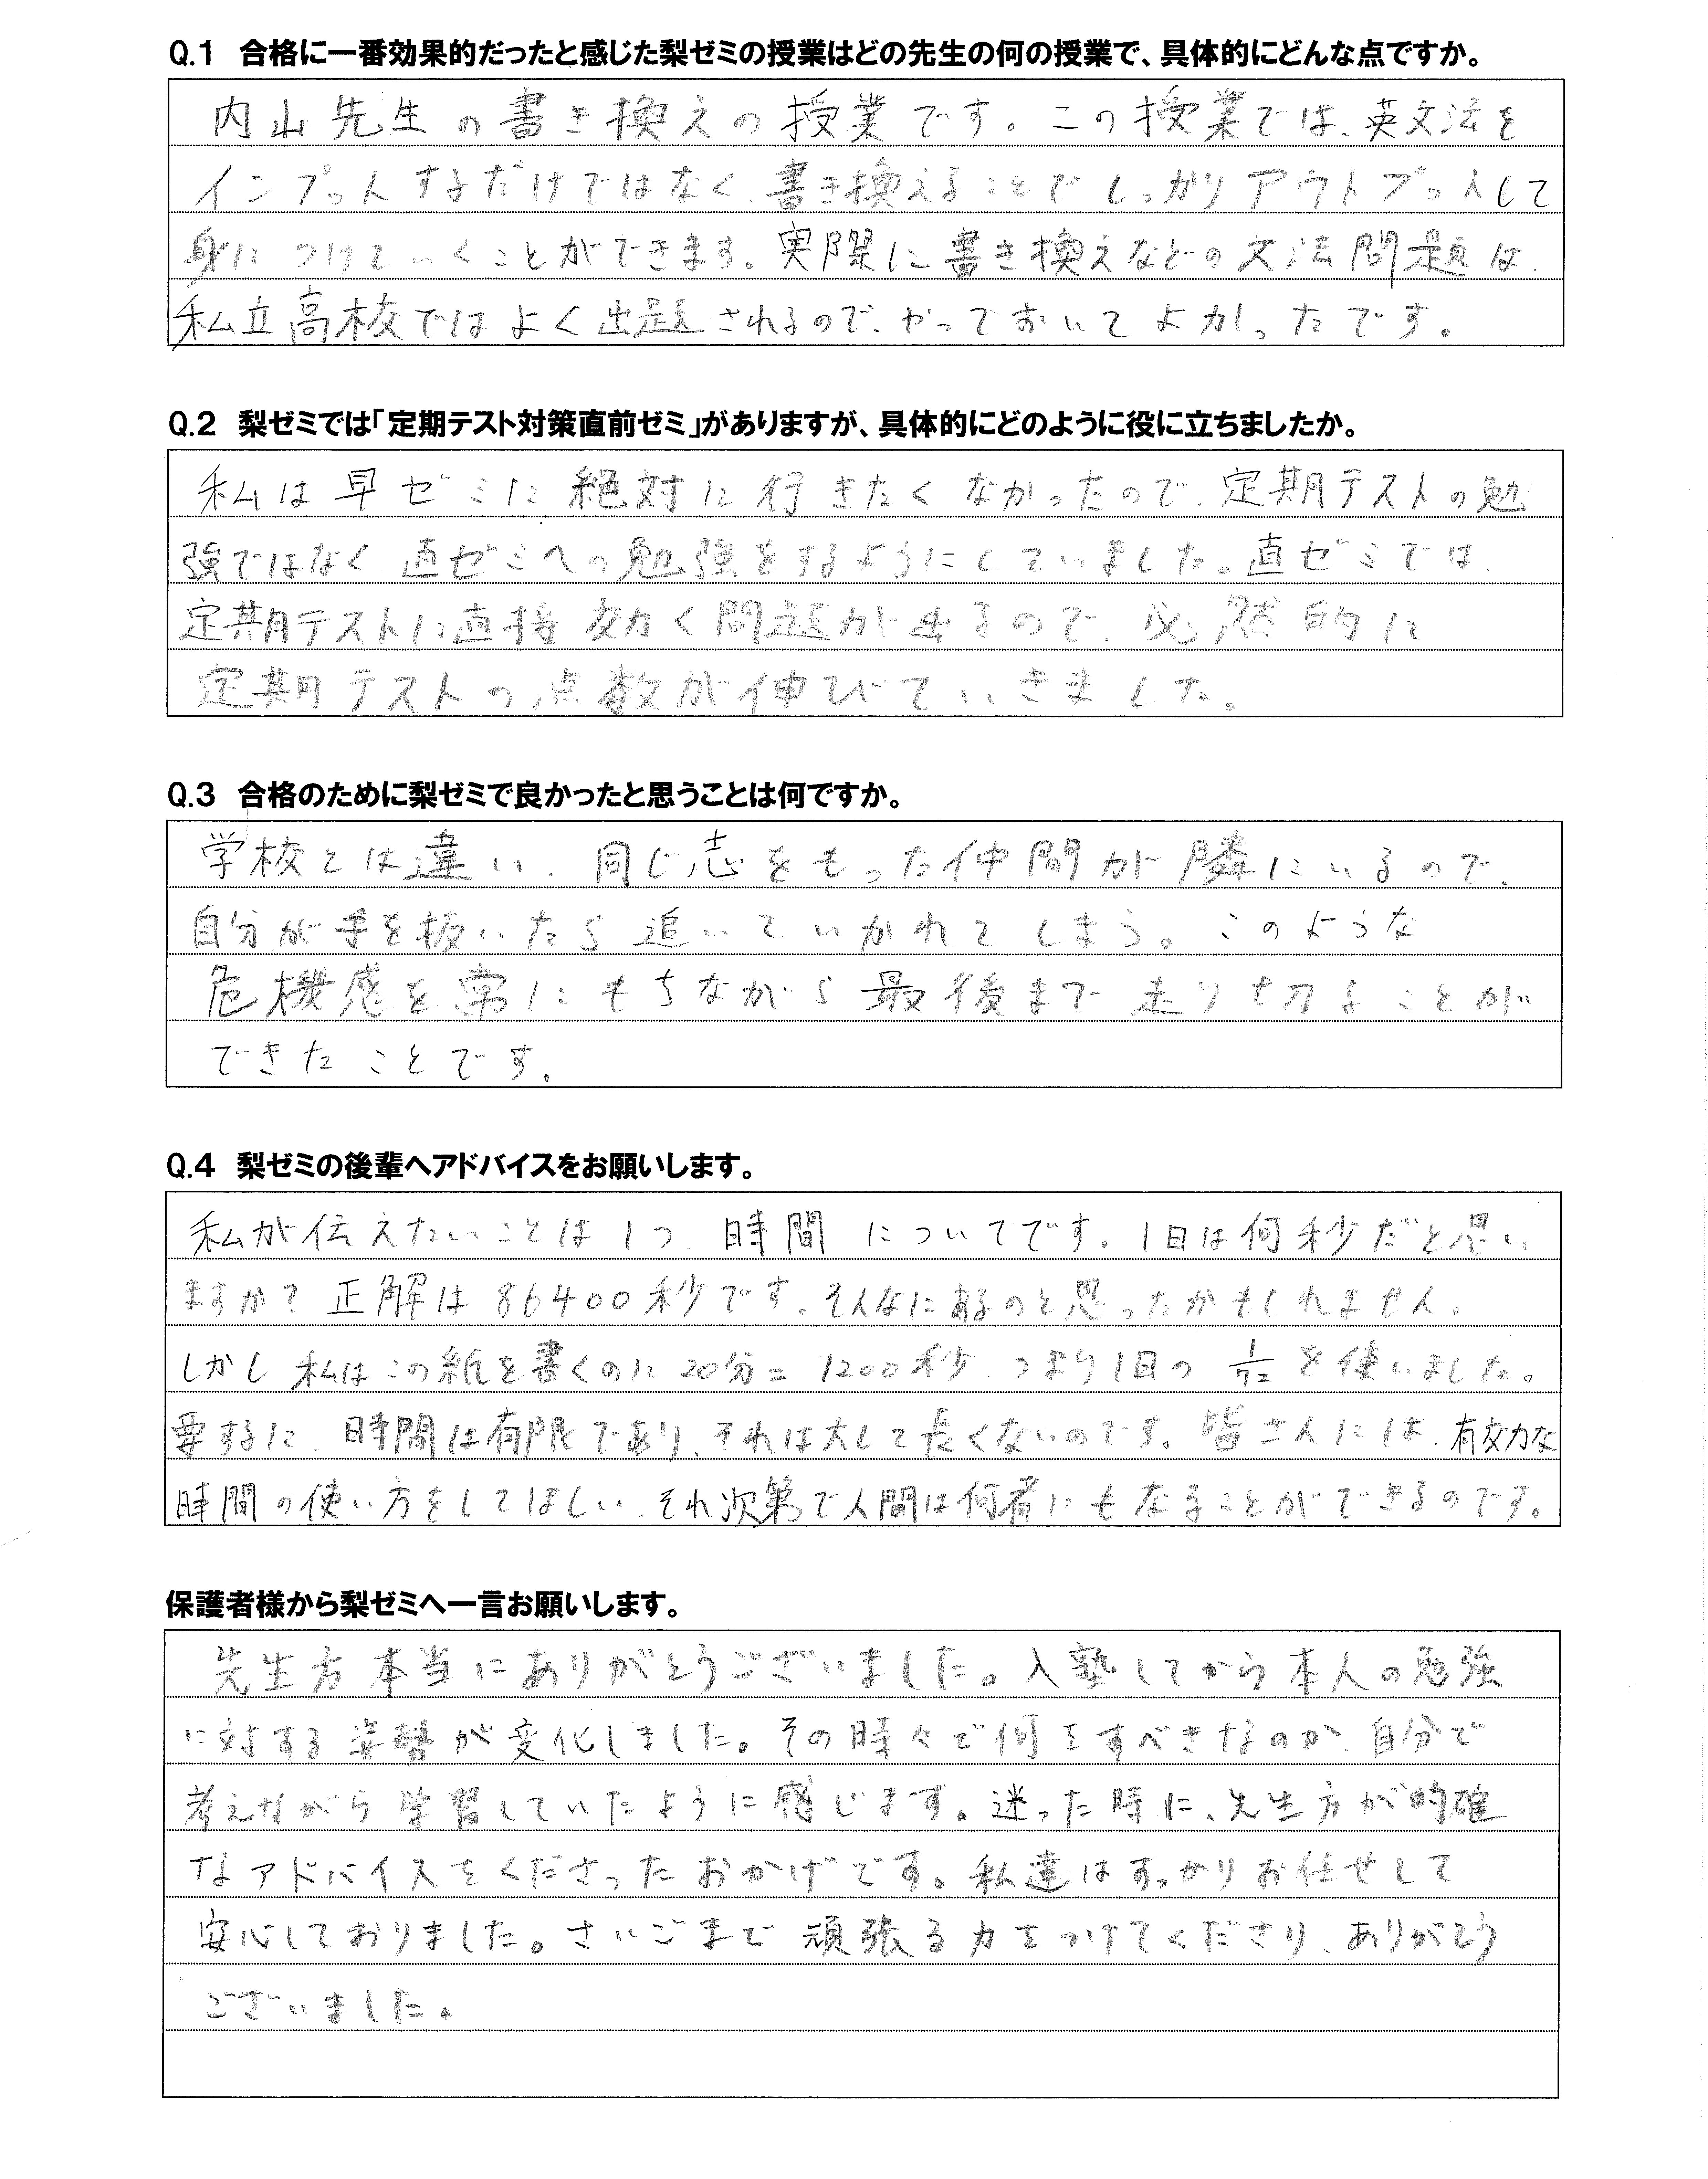 Q.1 合格に一番効果的だったと感じた梨ゼミの授業はどの先生の何の授業で、具体的にどんな点ですか。
内山先生の書き換えの授業です。この授業では、英文法を
インプットするだけではなく、書き換えることでしっかりアウトプットして
身につけていくことができます。実際に書き換えなどの文法問題は、
私立高校ではよく出題されるので、やっておいてよかったです。
Q.2 梨ゼミでは「定期テスト対策直前ゼミ」がありますが、具体的にどのように役に立ちましたか。
私は早ゼミに絶対に行きたくなかったので、定期テストの勉
強ではなく直ゼミへの勉強をするようにしていました。直ゼミでは、
定期テストに直接効く問題が出るので、必然的に
定期テストの点数が伸びていきました。
Q.3 合格のために梨ゼミで良かったと思うことは何ですか。
学校とは違い、同じ志をもった仲間が隣にいるので、
自分が手を抜いたら追いていかれてしまう。このような
危機感を常にもちながら最後まで走り切ることが
できたことです。
Q.4 梨ゼミの後輩へアドバイスをお願いします。
私が伝えたいことは1つ、時間についてです。1日は何秒だと思い
ますか?正解は86400秒です。そんなにあるのと思ったかもしれません。
しかし私はこの紙を書くのに20分=1200秒、つまり1日の1/72を使いました。
要するに、時間は有限であり、それは大して長くないのです。皆さんには、有効な
時間の使い方をしてほしい、それ次第で人間は何者にもなることができるのです。
保護者様から梨ゼミへ一言お願いします。
先生方本当にありがとうございました。入塾してから本人の勉強
に対する姿勢が変化しました。その時々で何をすべきなのか、自分で
考えながら学習していたように感じます。迷った時に、先生方が的確
なアドバイスをくださったおかげです。私達はすっかりお任せして
安心しておりました。さいごまで頑張る力をつけてくださり、ありがとう
ございました。